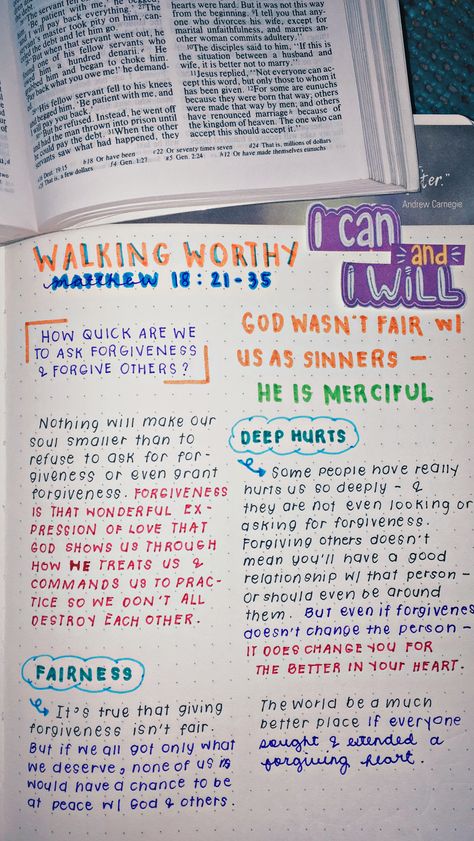 The patient with me,' he begged,
'I will pay back everything.'
master took pity on him, can-
the debt and let him go.
But when that servant went out, he
found one of his fellow servants who
him a hundred denarii.
him and began to choke him.
back what you owe me!' he demand-
His fellow servant fell to his knees
and begged him, 'Be patient with me, and
I will pay you back.'
But he refused. Instead, he went off
and had the man thrown into prison until
he could pay the debt. 31When the other
servants saw what had happened, they
hearts were hard. But it was not this way
from the beginning. 9I tell you that any-
one who divorces his wife, except for
marital unfaithfulness, and marries an-
other woman commits adultery."
10The disciples said to him, "If this is
the situation between a husband and
wife, it is better not to marry."
11Jesus replied, "Not everyone can ac-
cept this word, but only those to whom it
has been given. 12For some are eunuchs
because they were born that way; others
were made that way by men; and others
have renounced marriage because of
the kingdom of heaven. The one who can
accept this should accept it."
Deut. 19:15 b18 Or have been c22 Or seventy times seven d24 That is, millions of dollars
That is, a few dollars f4 Gen. 1:27 g5 Gen. 2:24 h12 Or have made themselves eunuchs
ter."
Andrew Carnegie
I can
and
I WILL
WALKING WORTHY
MATTHEW 18:21-35
HOW QUICK ARE WE
TO ASK FORGIVENESS
& FORGIVE OTHERS?
Nothing will make our
soul smaller than to
refuse to ask for for-
giveness or even grant
forgiveness. FORGIVENESS
IS THAT WONDERFUL EX-
PRESSION OF LOVE THAT
GOD SHOWS US THROUGH
HOW HE TREATS US &
COMMANDS US TO PRAC-
TICE SO WE DON'T ALL
DESTROY EACH OTHER.
FAIRNESS
It's true that giving
forgiveness isn't fair.
But if we all got only what
we deserve, none of us
would have a chance to be
at peace w/ God & others.
GOD WASN'T FAIR W/
US AS SINNERS –
HE IS MERCIFUL
DEEP HURTS
Some people have really
hurts us so deeply – &
they are not even looking or
asking for forgiveness.
Forgiving others doesn't
mean you'll have a good
relationship w/ that person –
or should even be around
them. But even if forgivenes
doesn't change the person –
IT DOES CHANGE YOU FOR
THE BETTER IN YOUR HEART.
The world be a much
better place if everyone
sought & extended a
forgiving heart.